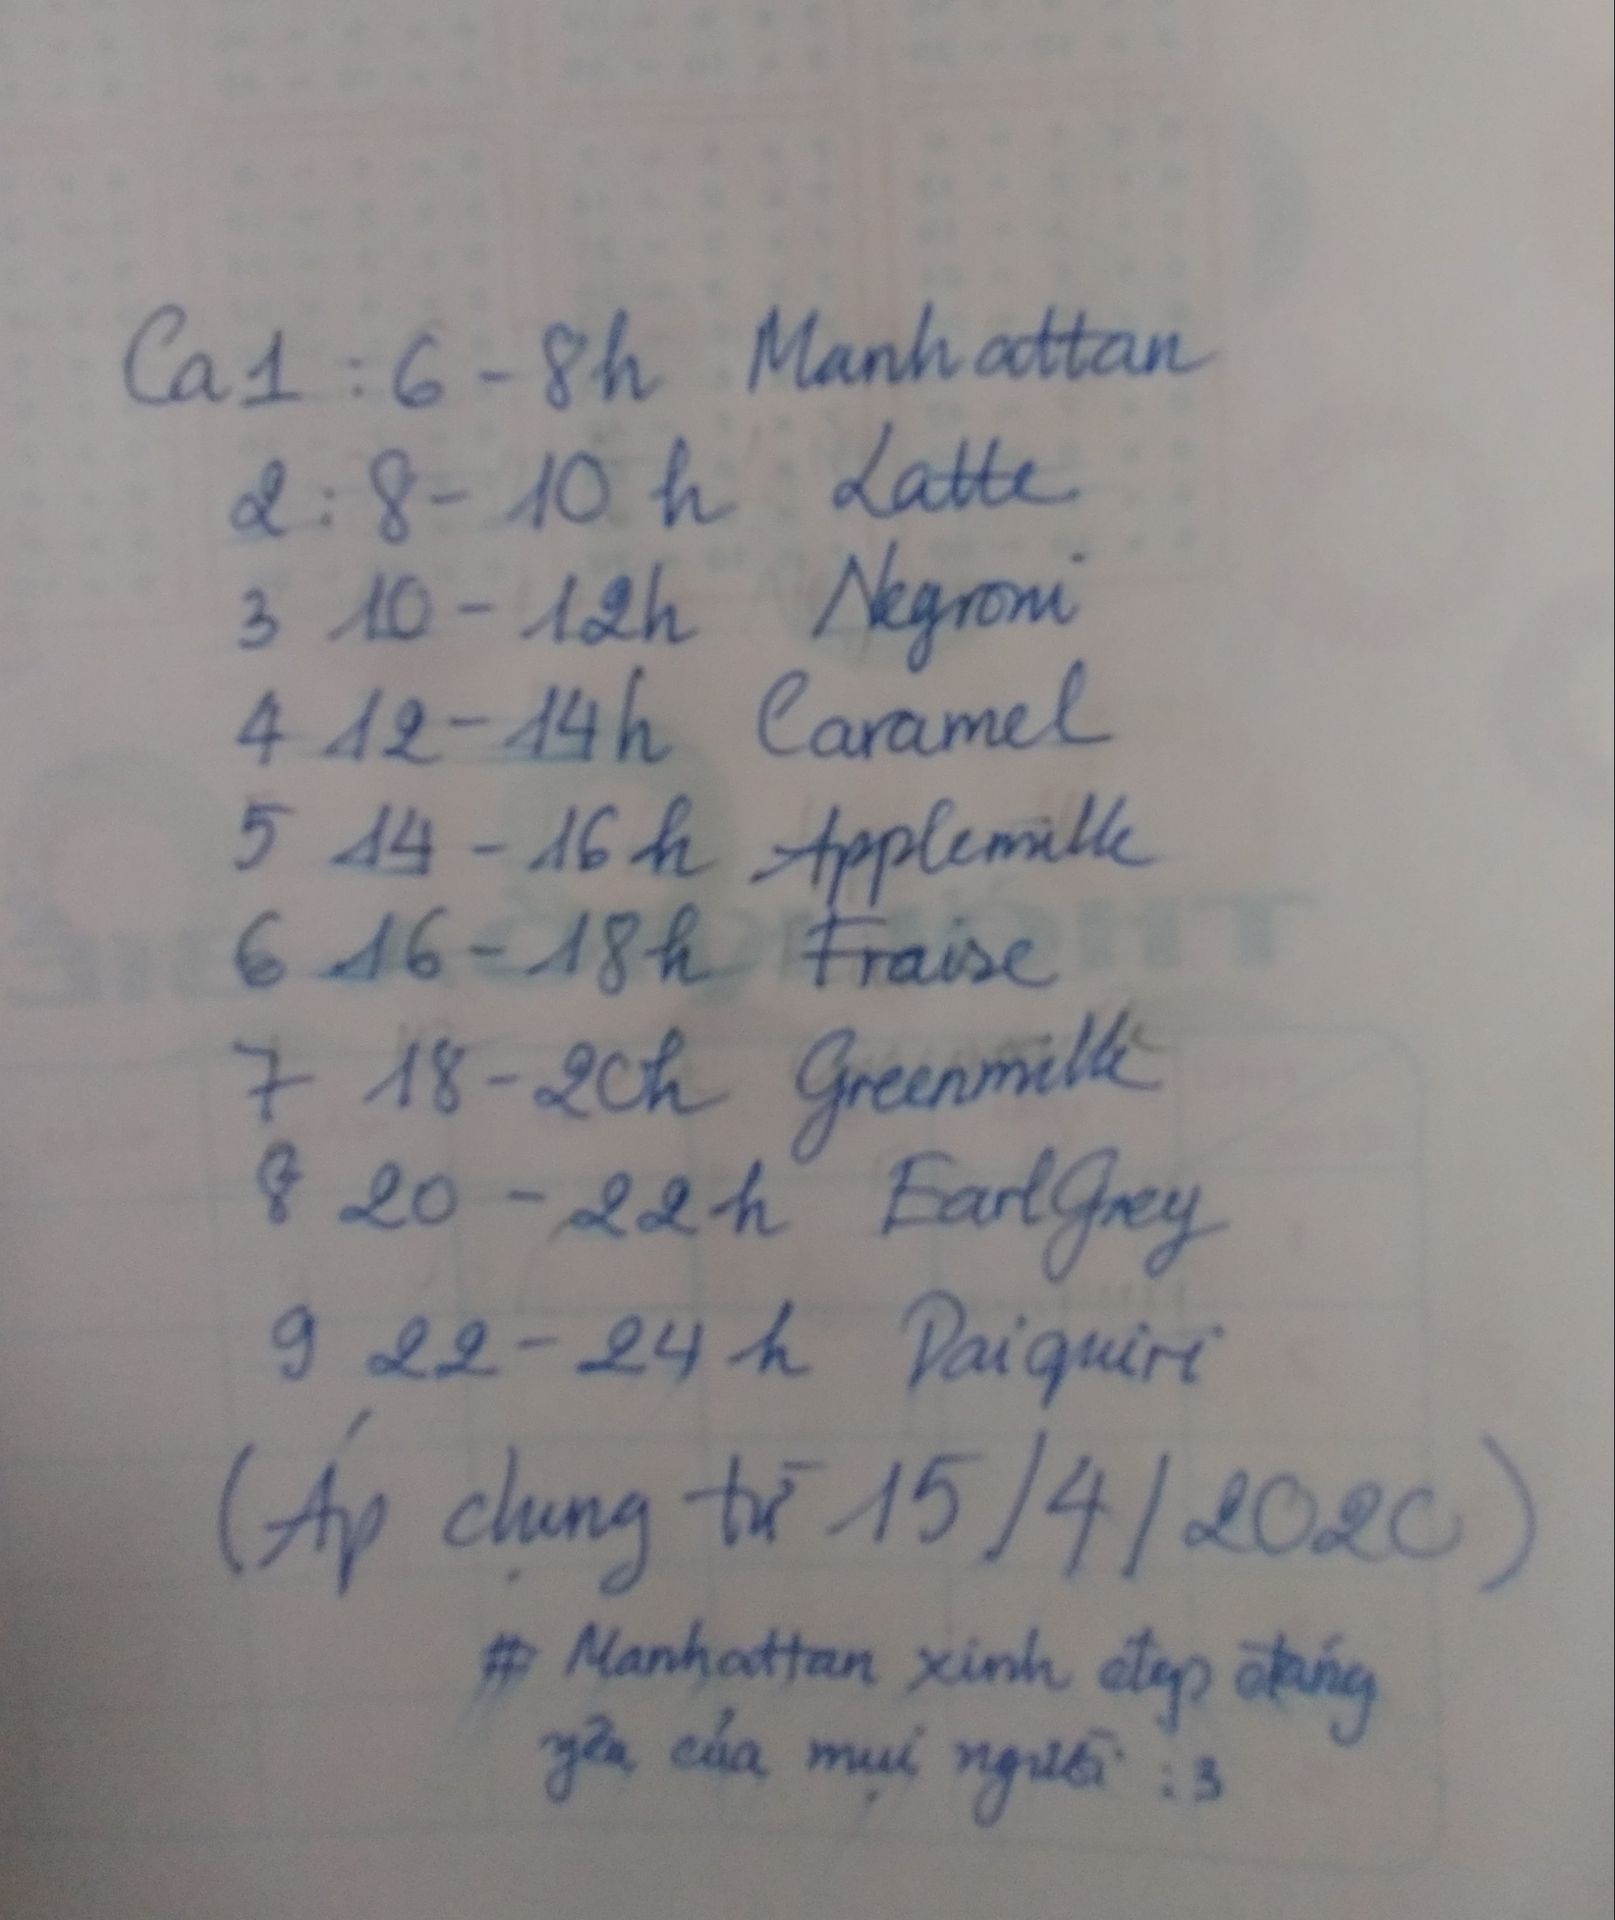 Ca 1 : 6 - 8h Manhattan
2 : 8 - 10 h Latte
3 10 - 12h Negroni
4 12 - 14h Caramel
5 14 - 16 h Applemilk
6 16 - 18h Fraise
7 18 - 20h Greenmilk
8 20 - 22 h Earl Grey
9 22 - 24 h Daiquiri
(Áp dụng từ 15/4/2020)
# Manhattan xinh đẹp đáng
yêu của mụi người :3